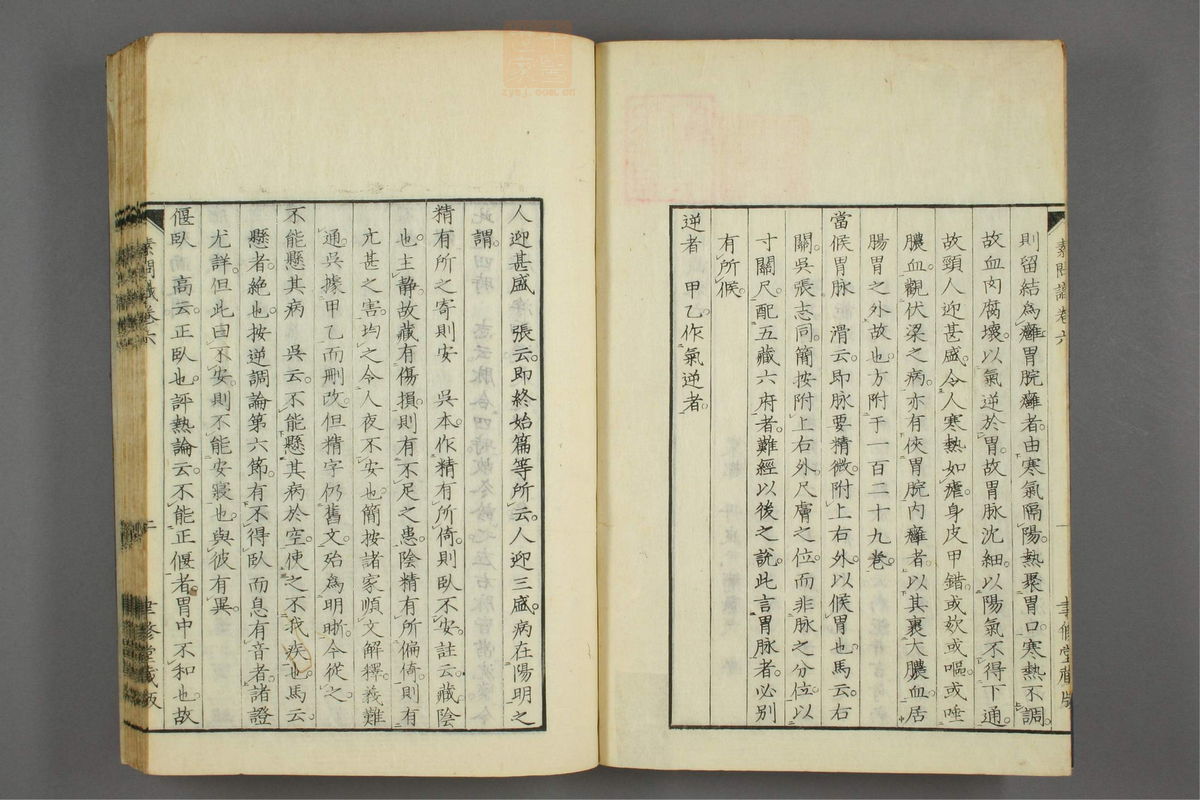 則留結為癰胃脘癰者由寒氣隔陽熱聚胃口寒熱不調
故血肉腐壞以氣逆於胃故胃脈沈細以陽氣不得下通
故頸人迎甚盛令人寒熱如瘧身皮甲錯或欬或嘔或唾
膿血觀伏梁之病亦有俠胃脘內癰者以其裹大膿血居
腸胃之外故也方附于一百二十九卷
當候胃脈 滑云即脈要精微附上右外以候胃也馬云右
關吳張志同簡按附上右外尺膚之位而非脈之分位以
寸關尺配五藏六府者難經以後之說此言胃脈者必別
有所候
逆者 甲乙作氣逆者
素問識卷六
聿修堂藏版
人迎甚盛 張云即終始篇等所云人迎三盛病在陽明之
此謂
精有所之寄則安 吳本作精有所倚則臥不安註云藏陰
也主靜故藏有傷損則有不足之患陰精有所偏倚則有
亢甚之害均之令人夜不安也簡按諸家順文解釋義難
通吳據甲乙而刪改但精字仍舊文殆為明晰今從之
不能懸其病 吳云不能懸其病於空使之不我疾也馬云
懸者絕也按逆調論第六節有不得臥而息有音者諸證
尤詳但此曰不安則不能安寢也與彼有異
偃臥 高云正臥也評熱論云不能正偃者胃中不和也故
素問識卷六
聿修堂藏版
zysj.com.cn